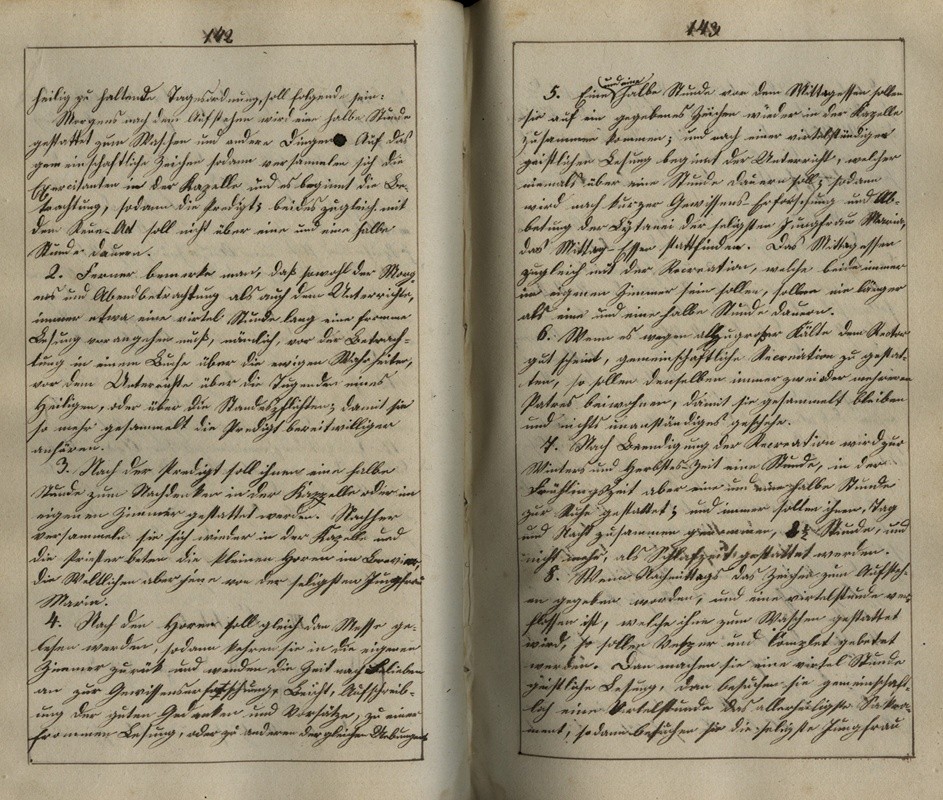 142
heilig zu haltende Tagesordnung, soll folgende sein:
Morgens nach dem Aufstehen wird eine halbe Stunde
gestattet zum Waschen und andere Dingen. Auf das
gemeinschaftliche Zeichen sodann versammeln sich die
Exercitanten in der Kapelle und es beginnt die Be-
trachtung, sodann die Predigt; beides zugleich mit
dem Reue-Act soll nicht über eine und eine halbe
Stunde dauern.
2. Ferner bemerke man, daß sowohl der Morg-
ens und Abendbetrachtung als auch dem Unterrichte,
immer etwa eine virtel Stunde lang eine fromme
Lesung vorangehen muß, nämlich, vor der Betrach-
tung in einem Buche über die ewigen Wahrheiten,
vor dem Unterrichte über die Tugenden eines
Heiligen, oder über die Standespflichten; damit sie
so mehr gesammelt die Predigt bereitwilliger
anhören.
3. Nach der Predigt soll ihnen eine halbe
Stunde zum Nachdenken in der Kapelle oder im
eigenen Zimmer gestattet werden. Nachher
versammeln sie sich wieder in der Kapelle und
die Priester beten die kleinen Horen im Brevier,
die Weltlichen aber jene von der seligsten Jungfrau
Maria.
4. Nach den Horen soll gleich die Messe ge-
lesen werden, sodann kehren sie in die eigenen
Zimmer zurük und wenden die Zeit nach Belieben
an zur Gewissenserforschung, Beicht, Aufschreib-
ung der guten Gedanken und Vorsätze, zu einer
frommen Lesung, oder zu anderen dergleichen Uebungen.
143
5. Eine und eine halbe Stunde vor dem Mittagessen sollen
sie auf ein gegebenes Zeichen wieder in der Kapelle
zusammen kommen; und nach einer virtelstündigen
geistlichen Lesung beginnt der Unterricht, welcher
niemals über eine Stunde dauern soll; sodann
wird nach kurzer Gewissens-Erforschung und Ab-
betung der Lytanei der seligsten Jungfrau Maria,
das Mittag-Essen stattfinden. Das Mittagessen
zugleich mit der Recreation, welche beide immer
im eigenen Zimmer sein sollen, sollen nie länger
als eine und eine halbe Stunde dauern.
6. Wenn es wegen allzugroßer Kälte dem Rector
gut scheint, gemeinschaftliche Recreation zu gestat-
ten, so sollen denselben immer zwei oder mehreren
Patres beiwohnen, damit sie gesammelt bleiben
und nichts unanständiges geschehe.
7. Nach Beendigung der Recreation wird zur
Winters und Herbstes-Zeit eine Stunde, in der
Frühlingszeit aber eine und eine halbe Stunde
zur Ruhe gestattet; und immer sollen ihnen, Tag
und Nacht zusammen genommen, Stunde, und
nicht mehr, als Schlafzeit gestattet werden.
8. Wenn Nachmittags das Zeichen zum Aufsteh-
en gegeben worden, und eine virtelstunde ver-
flossen ist, welche ihnen zum Waschen gestattet
wird, so sollen Vesper und Complet gebetet
werden. Dan machen sie eine virtel Stunde
geistliche Lesung, dan besuchen sie gemeinschaft-
lich eine Virtelstunde das allerheiligste Sakra-
ment, sodann besuchen sie die seligste Jungfrau